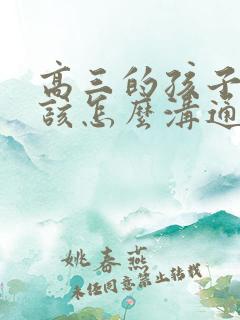 高三的孩子
該怎麼溝通
姚春燕
未经同意禁止转载